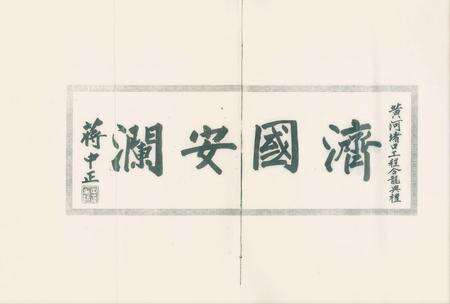 黃河堵口工程合龍典禮
濟國安瀾
蔣中正